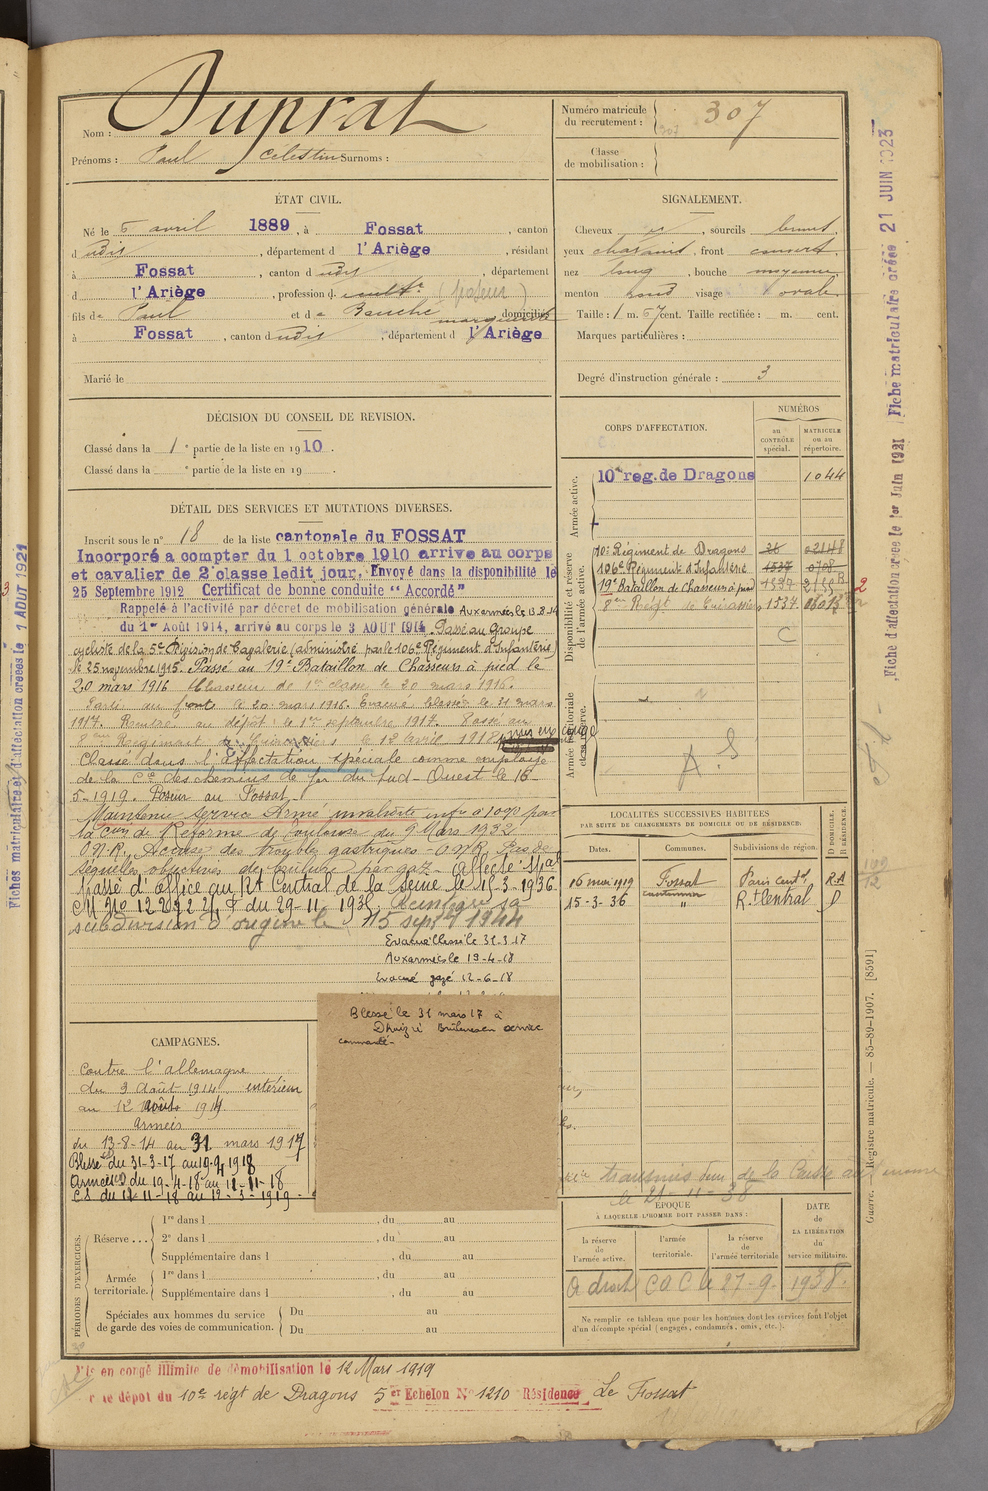 Nom : Duprat
Prénoms : Paul Célestin Surnoms :
Numéro matricule du recrutement : 307
307
Classe de mobilisation :
ÉTAT CIVIL.
Né le 5 avril 1889, à Fossat, canton
dudis, département d l'Ariège, résidant
à Fossat, canton dudis, département
d l'Ariège, profession d cultr (poseur)
fils de Paul et de Bauche marguerite domiciliés
à Fossat, canton dudis, département d l'Ariège
Marié le
SIGNALEMENT.
Cheveux et, sourcils bruns,
yeux chatains, front couvert,
nez long, bouche moyenne,
menton rond visage ovale
Taille : 1 m. 67 cent. Taille rectifiée : m. cent.
Marques particulières :
Degré d'instruction générale : 3
DÉCISION DU CONSEIL DE REVISION.
Classé dans la 1e partie de la liste en 1910.
Classé dans la e partie de la liste en 19 .
DÉTAIL DES SERVICES ET MUTATIONS DIVERSES.
Inscrit sous le n° 18 de la liste cantonale du FOSSAT
Incorporé a compter du 1 octobre 1910 arrive au corps
et cavalier de 2e classe ledit jour. Envoyé dans la disponibilité le
25 Septembre 1912 Certificat de bonne conduite "Accordé"
Rappelé à l'activité par décret de mobilisation générale Aux armées le 13.8.14
du 1er Août 1914, arrivé au corps le 3 AOUT 1914. Passé au Groupe
cycliste de la 5e Division de Cavalerie (administré par le 106e Régiment d'Infanterie)
le 25 novembre 1915. Passé au 19e Bataillon de Chasseurs à pied le
20 mars 1916 Chasseur de 1re classe le 20 mars 1916.
Parti au front le 20 mars 1916. Evacué blessé le 31 mars
1917. Rentré au dépôt le 1er septembre 1917. Passé au
8eme Regiment de Cuirassiers le 12 Avril 1918. mis en congé
Classé dans l'Affectation spéciale comme employé
de la Cie des chemins de fer du Sud-Ouest le 16-
5-1919. Poseur au Fossat
Maintenu Service Armé invalidité infre à 10% par
la Con de Réforme de Toulouse du 9 Mars 1932
O.N.R. Accuse des troubles gastriques - O.N.R. Pas de
séquelles objectives de brulure par gaz - affecté
Passé d'office au Rt Central de la Seine le 15-3-1936
du 29-11-1938
subdivision d'origine le 15 septe 1944
Evacué blessé le 31-3-17
Aux armées le 19-4-18
Evacué gazé 12-6-18
Blessé le 31 mars 17 à
Brûlures en service
commandé -
CAMPAGNES.
Contre l'allemagne
du 9 août 1914 intérieur
au 12 août 1914.
Armées
du 13-8-14 au 31 mars 1917
Blessé du 31-3-17 au 19-4 1918
Armées du 19-4-18 au 11-11-18
CS du 12-11-18 au 12-3-1919 -
CORPS D'AFFECTATION.
NUMÉROS
au CONTRÔLE spécial.
MATRICULE ou au répertoire.
Armée active.
10e reg. de Dragons 1044
Disponibilité et réserve de l'armée active.
10e Régiment de Dragons 26 02148
106e Régiment d'Infanterie 1537 0708
19e Bataillon de Chasseurs à pied 1537
8eme Regt de Cuirassiers 1537
C
2
Armée territoriale et sa réserve.
A.S
LOCALITÉS SUCCESSIVES HABITÉES
PAR SUITE DE CHANGEMENTS DE DOMICILE OU DE RÉSIDENCE.
Dates. Communes. Subdivisions de région. D DOMICILE. R RÉSIDENCE.
16 mai 1919 Fossat Paris Centl R.A
cantonnier
15-3-36 " R.t Central D
le 21-11-38
ÉPOQUE
À LAQUELLE L'HOMME DOIT PASSER DANS :
la réserve de l'armée active.
l'armée territoriale.
la réserve de l'armée territoriale
DATE de LA LIBÉRATION du service militaire.
a droit CDC le 27-9-1938.
Ne remplir ce tableau que pour les hommes dont les services font l'objet
d'un décompte spécial (engagés, condamnés, omis, etc.).
PÉRIODES D'EXERCICES.
Réserve ... 1re dans l , du au
2e dans l , du au
Supplémentaire dans l , du au
Armée territoriale. 1re dans l , du au
Supplémentaire dans l , du au
Spéciales aux hommes du service
de garde des voies de communication. Du au
Du au
Mis en congé illimité de démobilisation le 12 Mars 1919
le dépot du 10e regt de Dragons 5er Echelon N° 1210 Résidence Le Fossat
Fiches matriculaire et d'affectation créées le 1 AOUT 1921
Fiche d'affectation créée le 1er Juin 1921 Fiche matriculaire créée 21 JUIN 1923
Guerre. — Registre matricule. — 85-89-1907. [8591]